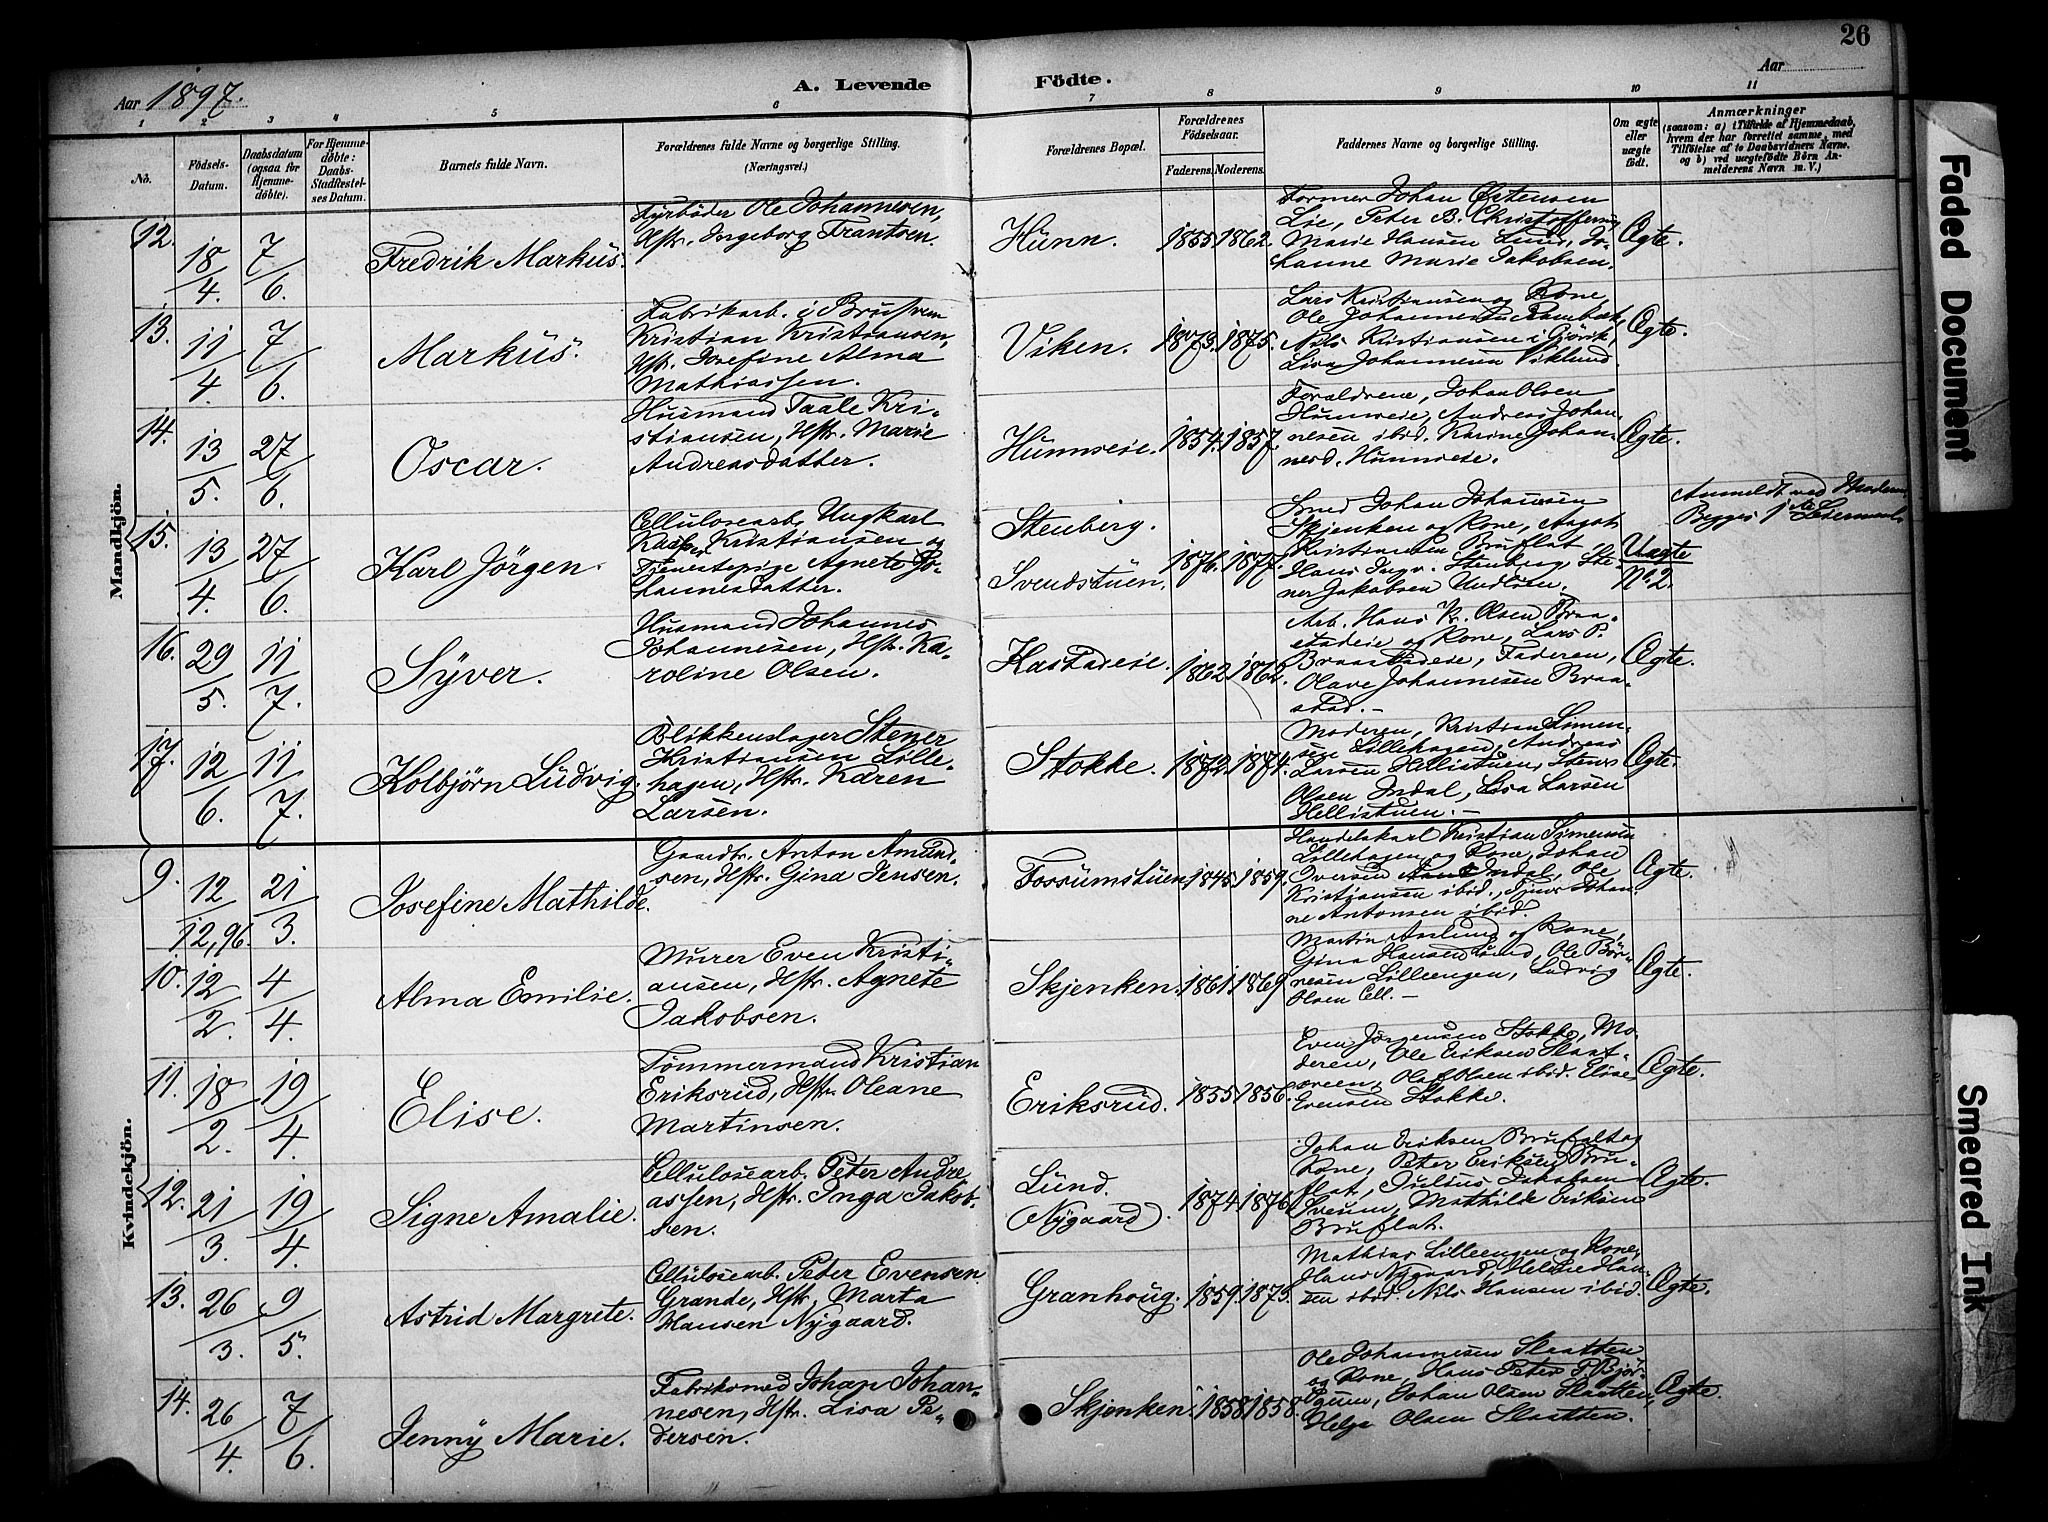 26
Aar 1897.
A. Levende Födte.
Aar
1 2 3 4 5 6 7 8 9 10 11
No.
Födsels-
Datum.
Daabsdatum
(ogsaa for
Hjemme-
döbte).
For Hjemme-
döbte:
Daabs-
Stadfæstel-
ses Datum.
Barnets fulde Navn.
Forældrenes fulde Navne og borgerlige Stilling.
(Næringsvei.)
Forældrenes Bopæl.
Forældrenes
Födselsaar.
Faderens. Moderens.
Faddernes Navne og borgerlige Stilling.
Om ægte
eller
uægte
födt.
Anmærkninger
(saasom: a) i Tilfælde af Hjemmedaab,
hvem der har forrettet samme, med
Tilföielse af to Daabsvidners Navne.
og b) ved uægtefödte Börn An-
melderens Navn m. V.)
Mandkjön.
12.
18/4.
7/6.
Fredrik Markus.
Fyrböder Ole Johannesen,
Hstr. Ingeborg Frantsen.
Hunn.
1855. 1862.
Former Johan Östensen
Lie, Peter B. Christoffersen,
Marie Hansen Lund, Jo-
hanne Marie Jakobsen.
Ægte.
13.
11/4
7/6.
Markus.
Fabrikarb. i Brusveen
Kristian Kristiansen,
Hstr. Josefine Alma
Mathiassen.
Viken.
1873. 1875.
Lars Kristiansen og Kone,
Ole Johannesen Rambæk,
Nils Kristiansen i Gjövik,
Lisa Johannesen Viklund.
Ægte.
14.
13/5.
27/6.
Oscar.
Husmand Taale Kri-
stiansen, Hstr. Marie
Andreasdatter.
Hunnseie.
1854. 1857.
Forældrene, Johan Olsen
Hunnseie, Andreas Johan-
nesen ibid. Karine Johan-
nesd. Hunnseie.
Ægte.
15.
13/4.
27/6.
Karl Jörgen.
Cellulosearb. Ungkarl
Kristiansen og
Tjenestepige Agnete Jo-
hannesdatter.
Stenberg.
Svendstuen.
1876. 1877.
Smed Johan Johansen
Skjenken og Kone, Aagot
Kristiansen Bruflat,
Hans Ingv. Stenberg, Ste-
ner Jakobsen
Uægte
No 2.
Anmeldt ved Moderen.
Begges 1ste Leiermaal.
16.
29/5
11/7.
Syver.
Husmand Johannes
Johannesen, Hstr. Ka-
roline Olsen.
Kastadeie.
1862. 1862.
Arb. Hans Kr. Olsen Braa-
stadeie og Kone, Lars P.
Braastadeie, Faderen,
Olave Johannesen Braa-
stad.-
Ægte.
17.
12/6.
11/7.
Kolbjörn Ludvig.
Blikkenslager Stener
Kristiansen Lille-
hagen, Hstr. Karen
Larsen.
Stokke.
1872. 1874.
Moderen, Kristian Simen-
sen Lillehagen, Andreas
Larsen Hellistuen, Stener
Olsen Indal, Lisa Larsen
Hellistuen.-
Ægte.
Kvindekjön.
9.
12/12,96.
21/3.
Josefine Mathilde.
Gaardbr. Anton Amund-
sen, Hstr. Gina Jensen.
Fossumstuen.
1845. 1859.
Handelskarl Kristian Simensen
Lillehagen og Kone, Johan
Iversen Indal, Ole
Kristiansen ibid.,
ne Antonsen ibid.
Ægte.
10.
12/2.
4/4.
Alma Emilie.
Murer Even Kristi-
ansen, Hstr. Agnete
Jakobsen.
Skjenken.
1861. 1869.
Martin Aaslund og Kone,
Gina Hansen Lund, Ole Bör-
resen Lilleengen, Ludvig
Olsen Cell.-
Ægte.
11.
18/2.
19/4.
Elise.
Tömmermand Kristian
Eriksrud, Hstr. Oleane
Martinsen.
Eriksrud.
1855. 1856.
Even Jörgensen Stokke, Mo-
deren, Ole Eriksen Slaat-
sveen, Olaf Olsen ibid. Elise
Evensen Stokke.
Ægte.
12.
21/3.
19/4.
Signe Amalie.
Cellulosearb. Peter Andre-
assen, Hstr. Inga Jakob-
sen.
Lund.
(Nygaard).
1874. 1876.
Johan Eriksen Bruflat og
Kone, Peter Eriksen Bru-
flat, Julius Jakobsen
Sveum, Mathilde Eriksen
Bruflat.
Ægte.
13.
26/3.
9/5.
Astrid Margrete.
Cellulosearb. Peder Evensen
Grande, Hstr. Marta
Hansen Nygaard.
Granhoug.
1859. 1873.
Mathias Lilleengen og Kone,
Hans Nygaard, Helene Han-
sen ibid. Nils Hansen ibid.
Ægte.
14.
26/4.
7/6.
Jenny Marie.
Fabriksmed Johan Johan-
nesen, Hstr. Lisa Pe-
dersen.
Skjenken.
1858. 1858.
Ole Johannesen Slaatten
og Kone, Hans Peter P. Bjør-
, Johan Olsen Slaatten,
Helga Olsen Slaatten.
Ægte.
Faded Document
Smeared Ink